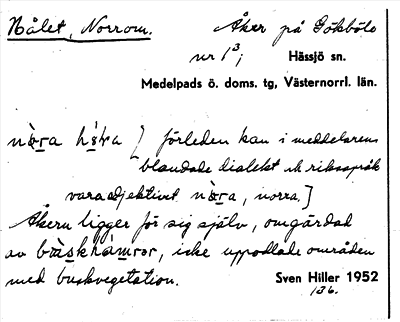 Hålet, Norrom. Åker på Gökböle
nr 1³;
Hässjö sn.
Medelpads ö. doms. tg, Västernorrl. län.
nò̱ra hó̱la [förleden kan i meddelarens
blandade dialekt och riksspråk
vara adjektivet nò̱ra, norra.]
Åkern ligger för sig själv, omgärdad
av bùskhàmror, icke uppodlade områden
med buskvegetation. Sven Hiller 1952
136.